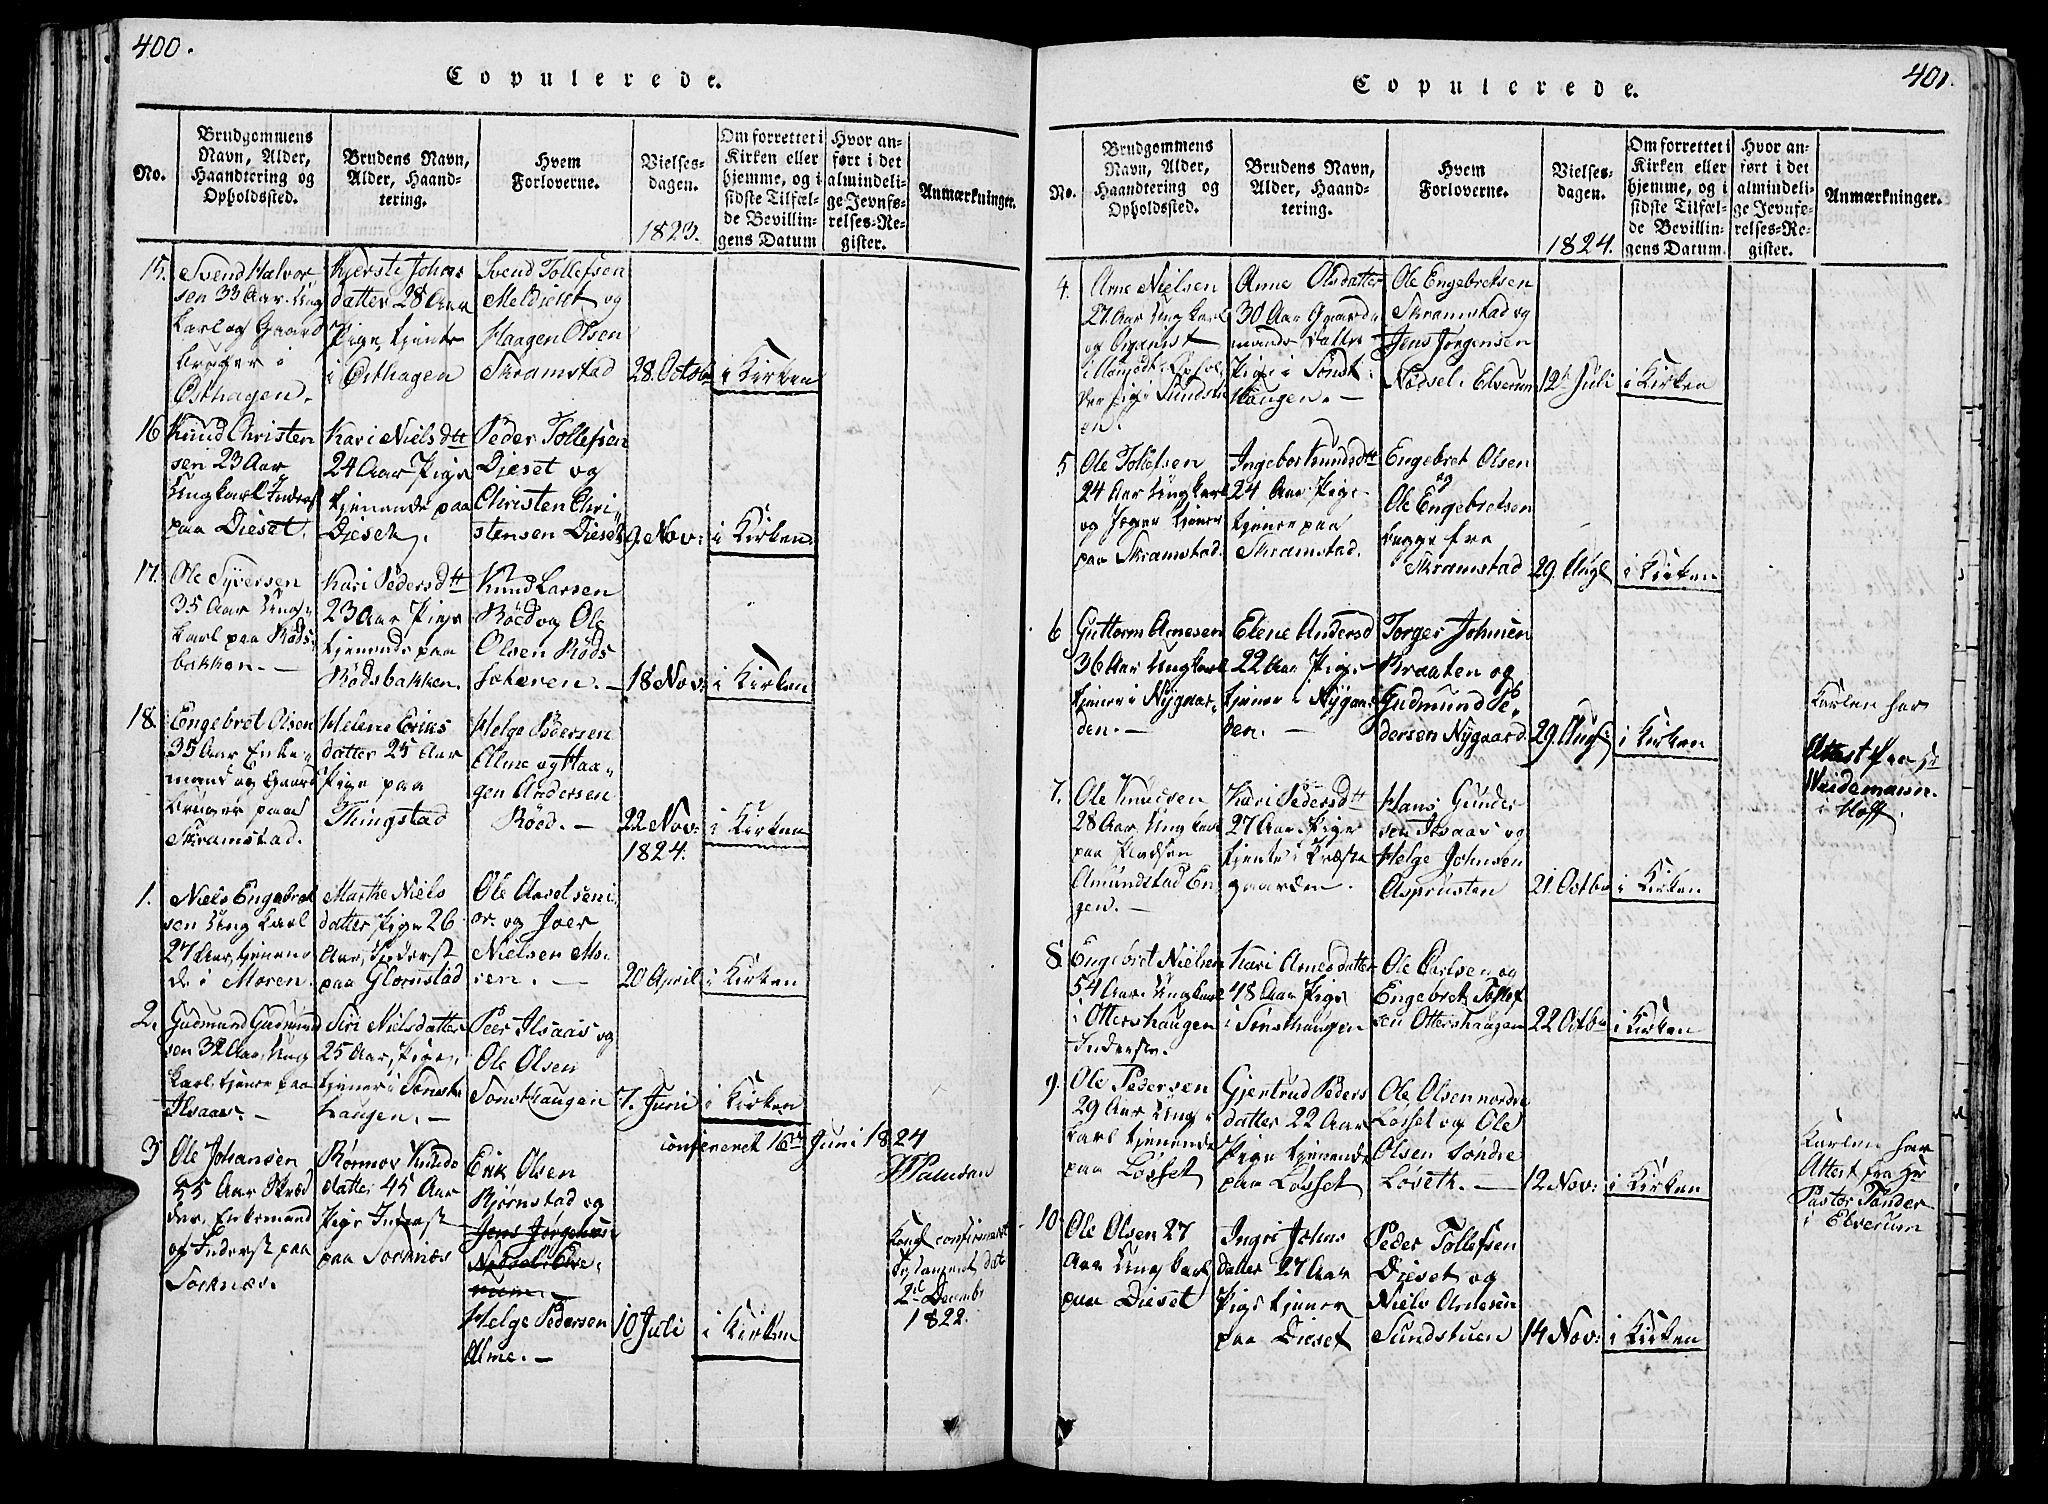 400.
Copulerede.
No.
Brudgommens
Navn, Alder,
Haandtering og
Opholdssted.
Brudens Navn,
Alder, Haand-
tering.
Hvem
Forloverne.
Vielses-
dagen.
1823.
Om forrettet i
Kirken eller
hjemme, og i
sidste Tilfæl-
de Bevillin-
gens Datum
Hvor an-
ført i det
almindeli-
ge Jevnfø-
relses-Re-
gister.
Anmærkninger.
15.
Svend Halvor
sen 33 Aar Ung
karl og Gaard
bruger i
Østhagen.
Kjersti Johns
datter 28 Aar
Pige tjente
i Østhagen
Svend Tollefsen
Meldieset og
Haagen Olsen
Skramstad
28. Octobr
i Kirken
16
Knud Christen
sen 23 Aar
Ungkarl Inderst
paa Dieset.
Kari Nielsdtt
24 Aar Pige
tjenende paa
Dieset.
Peder Tollefsen
Dieset og
Christen Chri
stensen Dieset
9 Nov:
i Kirken
17.
Ole Syversen
35 Aar Ung
karl paa Røds
bakken.
Kari Pedersdtt
23 Aar Pige
tjenende paa
Rödsbakken.
Knud Larsen
Röed og Ole
Olsen Röds
18 Nov:
i Kirken
18
Engebret Olsen
35 Aar Enke
mand og Gaard
bruger paa
Skramstad.
Helene Eriks
datter 25 Aar
Pige paa
Thingstad
Helge Pedersen
Alme og Haa
gen Andersen
Röed.
22 Nov:
i Kirken
1824.
1.
Niels Engebret
sen Ung karl
27 Aar, tjenen
de i Moren.
Marthe Niels
datter Pige 26
Aar, Inderst
paa Glomstad
or. og Joer
Nielsen Mo
ren.
20 April
i Kirken
2.
Gudmund Gudmund
sen 32 Aar, Ung
karl, tjener paa
Ilsaas.
Siri Nielsdatter
25 Aar, Pige,
tjener i Sönst
haugen.
Peer Ilsaas og
Ole Olsen
Sönsthaugen
7. Juni
i Kirken
confereret 16de Juni 1824
Paludan
3
Ole Johansen
55 Aar Skræd
der, Enkemand
og Inderst paa
Sorknæs.
Knuds
datter 45 Aar
Pige Inderst
paa Sorknæs
Erik Olsen
Bjørnstad og
Jens Jørgensen
Nødsel i Elve
rum
Helge Pedersen
Alme.
10 Juli
i Kirken
Kongl confirmeret
Testament dat
2d Decembr
1822.
401.
Copulerede.
No.
Brudgommens
Navn, Alder,
Haandtering og
Opholdssted.
Brudens Navn,
Alder, Haand-
tering.
Hvem
Forloverne.
Vielses-
dagen.
1824.
Om forrettet i
Kirken eller
hjemme, og i
sidste Tilfæl-
de Bevillin-
gens Datum.
Hvor an-
ført i det
almindeli-
ge Jevnfø-
relses-Re-
gister.
Anmærkninger.
4.
Arne Nielsen
27 Aar Ungkarl
og Organist
Anne Olsdatter
30 Aar Gaard
mands Datter
Pige i Sönst
haugen.
Ole Engebretsen
Skramstad og
Jens Jörgensen
Nødsel i Elverum
12te Juli
i Kirken
5
Ole Tollefsen
24 Aar Ungkarl
og Jeger tjener
paa Skramstad.
Ingebor Knudsdtt
24 Aar Pige
tjener paa
Skramstad.
Engebret Olsen
og
Ole Engebretsen
begge fra
Skramstad
29. Augt
i Kirken
6
Guttorm Arnesen
36 Aar Ungkarl
tjener i Nygaar
den.
Elene Andersd
22 Aar Pige
tjener i Nygaar
den.
Torger Johnsen
Braaten og
Gudmund Pe
dersen Nygaard
29. Aug:
i Kirken
Karlen har
Attest fra Hr
Weidemann
i Hoff.
7.
Ole Knudsen
28 Aar Ungkarl
paa Pladsen
Amundstad En
gen.
Kari Pedersdtt
27 Aar Pige
tjente i Præste
gaarden.
Hans Gunder
sen Ilsaas og
Helge Johnsen
Asprusten
21. Octbr
i Kirken
8
Engebret Nielsen
54 Aar Ungkarl
i Ottershaugen
Inderst.
Kari Arnesdatter
48 Aar Pige
i Sønsthaugen
Ole Carlsen og
Engebret Tollef
sen Ottershaugen
22 Octbr
i Kirken
9.
Ole Pedersen
29 Aar Ung
karl tjenende
paa Løsset
Gjertrud Peders
datter 22 Aar
Pige tjenende
paa Løsset
Ole Olsen nordre
Løsset og Ole
Olsen Søndre
Løseth.
12 Nov:
i Kirken
Karlen har
Attest fra Hr
Pastor Tønder
i Elverum
10
Ole Olsen 27
Aar Ung karl
paa Dieset
Ingri Johns
datter 27 Aar
Pige tjener
paa Dieset
Peder Tollefsen
Dieset og
Niels Arnesen
Sundstuen
14 Nov:
i Kirken